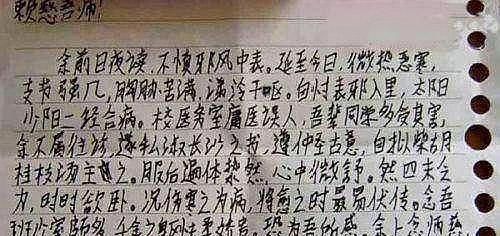 慈吾师！
余前日夜读，不慎邪风中表。延至今日，微热恶寒，
支节 烦，胸胁苦满，清冷干呕。自忖表邪入里，太阳
少阳二经合病。校医务室庸医误人，吾辈同学多受其害，
余不屑往诊，遂私淑长沙之书，遵仲圣古意，自拟柴胡
桂枝汤主之。服后遍体漐然，心中微舒。然四末乏
力，时时欲卧。况伤寒之为病，将愈之时最易伏传。念吾
班 室